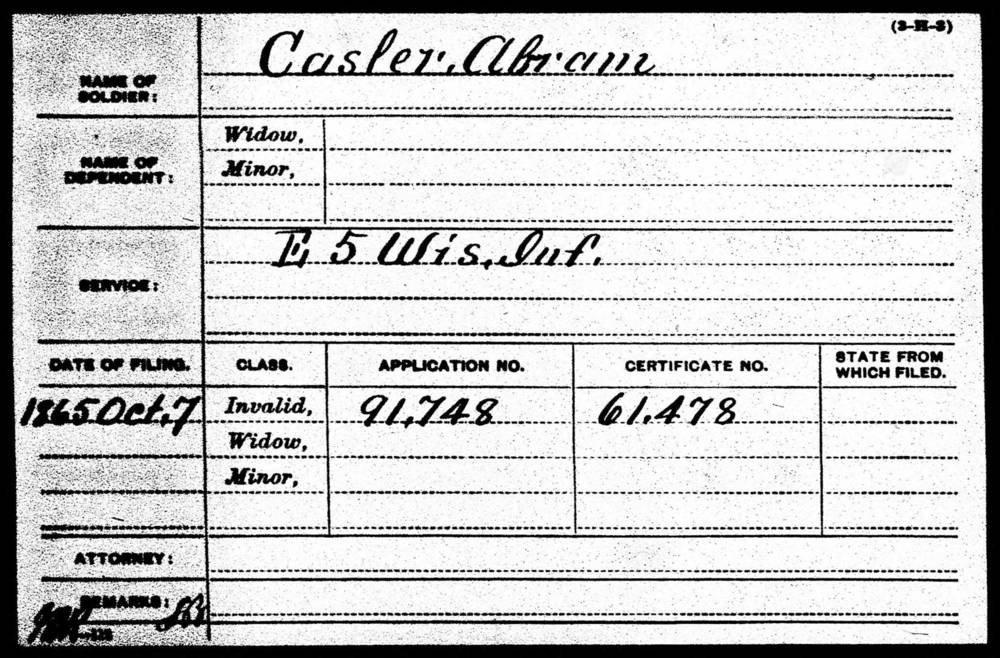 (3-H-3)
NAME OF
SOLDIER:
Casler, Abram
NAME OF
DEPENDENT:
Widow,
Minor,
SERVICE:
E, 5 Wis. Inf.
DATE OF FILING. CLASS. APPLICATION NO. CERTIFICATE NO. STATE FROM WHICH FILED.
1865 Oct. 7 Invalid, 91,748 61.478
Widow,
Minor,
ATTORNEY:
REMARKS: